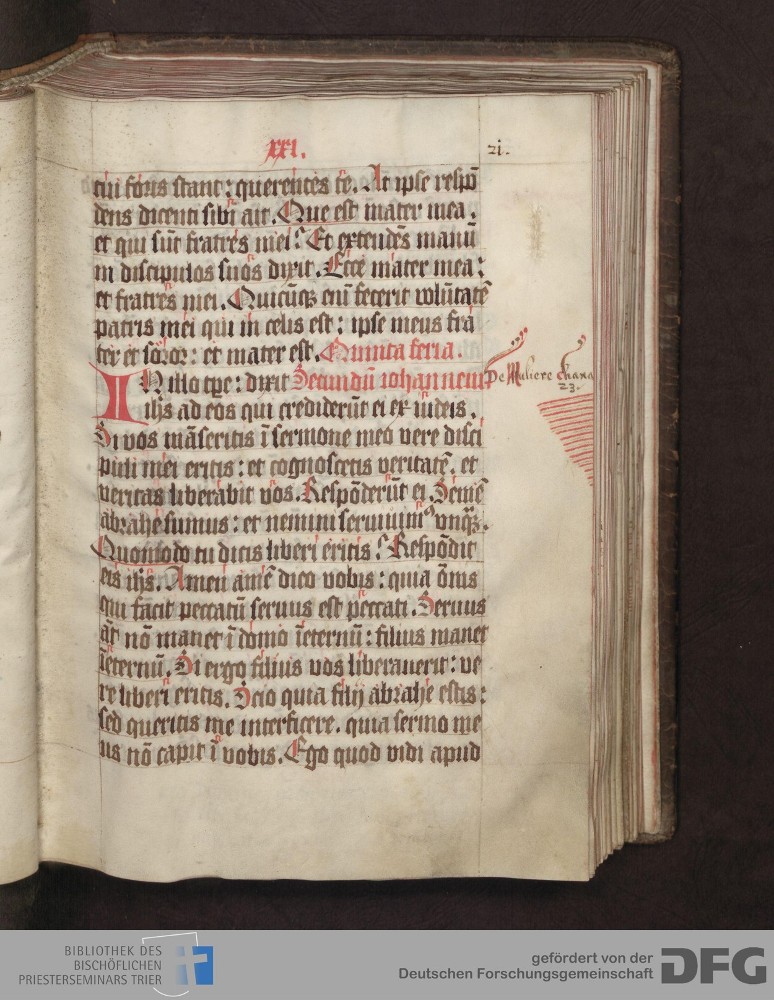 XXI.
21.
tui foris stant: querentes te. At ipse respō
dens dicenti sibi ait. Que est mater mea.
et qui sūt fratres mei? Et extendēs manū
in discipulos suos dixit. Ecce mater mea:
et fratres mei. Quicūqꝫ eni᷑ fecerit volūtatē
patris mei qui in celis est: ipse meus fra
ter et soror: et mater est. Quinta feria.
IN illo tꝑe: dixit Secundū iohannem
De Muliere Chana
23.
ihs ad eos qui crediderūt ei ex iudeis.
Si vos māseritis ī sermone meo vere disci
puli mei eritis: et cognoscetis veritatē. et
veritas liberabit vos. Respōderūt ei. Semē
abrahe sumus: et nemini seruiuimꝰ vnqꝫ.
Quomodo tu dicis liberi eritis? Respōdit
eis ihs. Amen amē dico vobis: quia ōnis
qui facit peccatū seruus est peccati. Seruus
aūt nō manet ī domo īeternū: filius manet
īeternū. Si ergo filius vos liberauerit: ve
re liberi eritis. Scio quia filij abrahe estis:
sed queritis me interficere. quia sermo me
us nō capit ī vobis. Ego quod vidi apud
BIBLIOTHEK DES
BISCHÖFLICHEN
PRIESTERSEMINARS TRIER
gefördert von der
Deutschen Forschungsgemeinschaft DFG